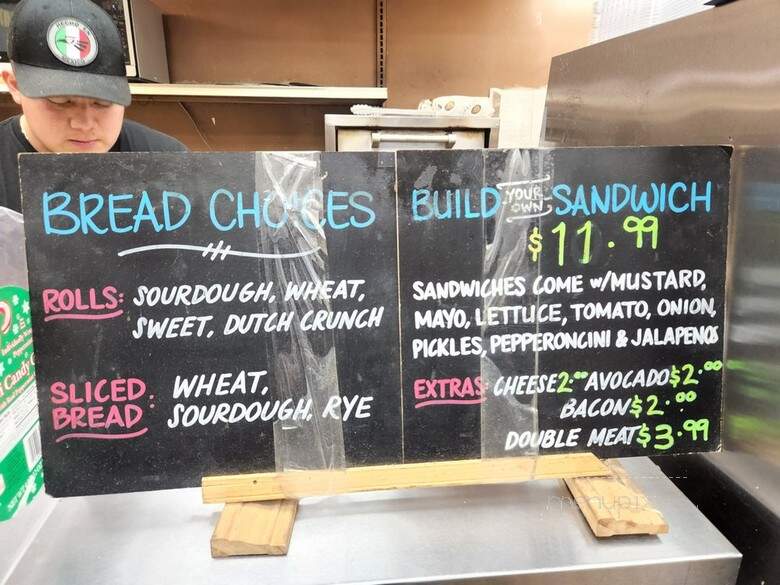 HECHO EN
BREAD CHOICES
ROLLS: SOURDOUGH, WHEAT,
SWEET, DUTCH CRUNCH
SLICED: WHEAT,
BREAD SOURDOUGH, RYE
BUILD YOUR OWN SANDWICH
$11.99
SANDWICHES COME w/MUSTARD,
MAYO, LETTUCE, TOMATO, ONION,
PICKLES, PEPPERONCINI & JALAPENOS
EXTRAS: CHEESE 2.00 AVOCADO $2.00
BACON $2.00
DOUBLE MEAT $3.99
Candy
menupix